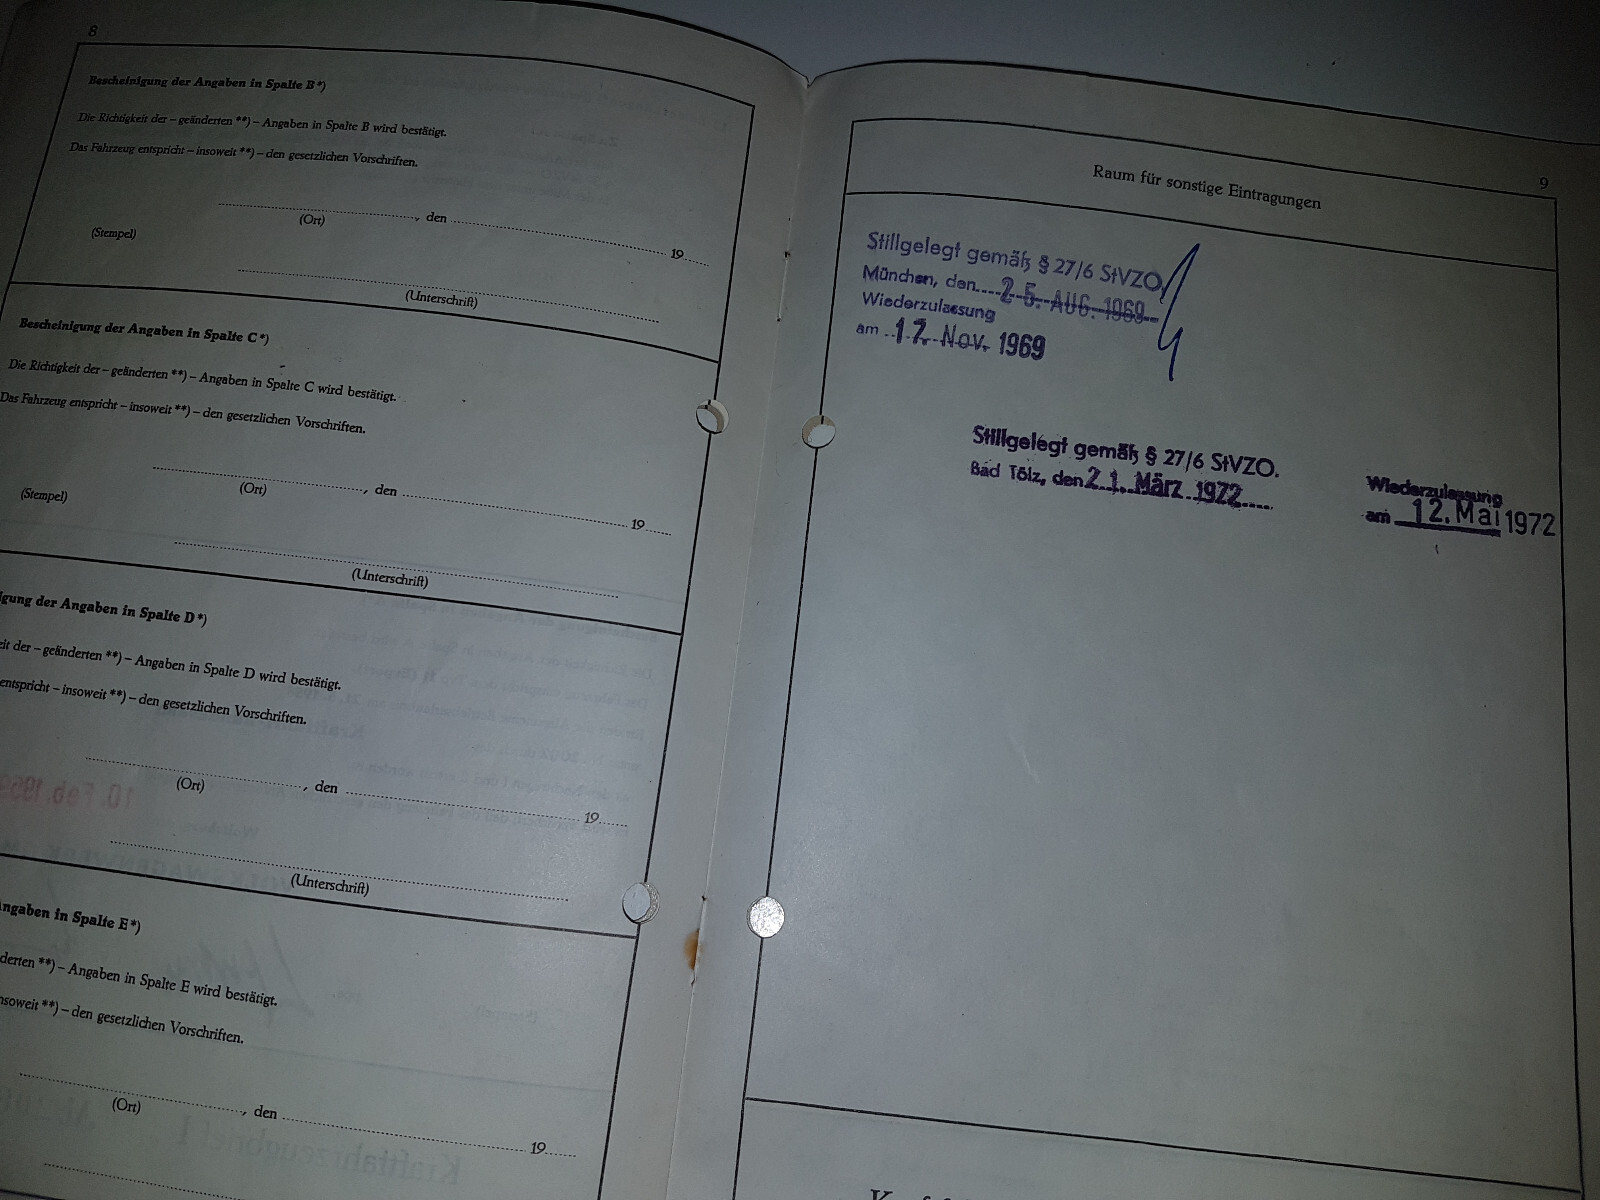 8
Bescheinigung der Angaben in Spalte B*)
Die Richtigkeit der – geänderten **) – Angaben in Spalte B wird bestätigt.
Das Fahrzeug entspricht – insoweit **) – den gesetzlichen Vorschriften.
, den 19
(Ort)
(Stempel)
(Unterschrift)
Bescheinigung der Angaben in Spalte C*)
Die Richtigkeit der – geänderten **) – Angaben in Spalte C wird bestätigt.
Das Fahrzeug entspricht – insoweit **) – den gesetzlichen Vorschriften.
, den 19
(Ort)
(Stempel)
(Unterschrift)
igung der Angaben in Spalte D*)
eit der – geänderten **) – Angaben in Spalte D wird bestätigt.
entspricht – insoweit **) – den gesetzlichen Vorschriften.
, den 19
(Ort)
(Unterschrift)
Angaben in Spalte E*)
derten **) – Angaben in Spalte E wird bestätigt.
nsoweit **) – den gesetzlichen Vorschriften.
, den 19
(Ort)
9
Raum für sonstige Eintragungen
Stillgelegt gemäß § 27/6 StVZO
München, den 25. AUG. 1969
Wiederzulassung
am 17. Nov. 1969
Stillgelegt gemäß § 27/6 StVZO.
Bad Tölz, den 21. März 1972
Wiederzulassung
am 12. Mai 1972